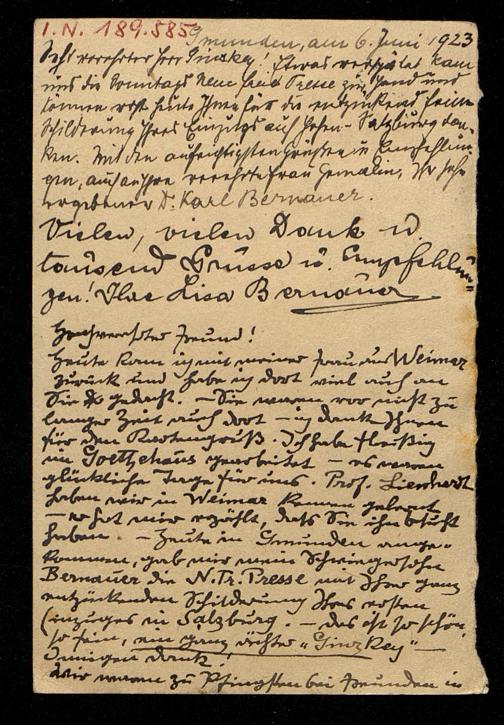 I. N. 189.585
Gmunden, am 6. Juni 1923
Sehr verehrter Herr Ginzkey! Etwas verspätet kam
uns die Sonntags Neue Freie Presse zur Hand und
können erst heute Ihnen für die entzückend feine
Schilderung Ihres Einzugs auf Hohen-Salzburg dan-
ken. Mit den aufrichtigsten Grüßen u. Empfehlun-
gen, auch an Ihre verehrte Frau Gemalin, Ihr sehr
ergebener Dr. Karl Bernauer.
Vielen, vielen Dank u.
tausend Grüsse u. Empfehlun-
gen! Ihre Lisa Bernauer
Hochverehrter Freund!
Heute kam ich mit meiner Frau aus Weimar
zurück und habe ich dort viel auch an
Sie gedacht. – Sie waren vor nicht zu
langer Zeit auch dort – ich danke Ihnen
für den Kartengruß. Ich habe fleißig
im Goethehaus gearbeitet – es waren
glückliche Tage für uns. Prof. Lienhardt
haben wir in Weimar kennen gelernt
– er hat mir erzählt, daß Sie ihn besucht
haben. – Heute in Gmunden ange-
kommen, gab mir mein Schwiegersohn
Bernauer die N. Fr. Presse mit Ihrer ganz
entzückenden Schilderung Ihres ersten
Einzuges in Salzburg. – das ist so schön,
so fein, ein ganz ächter "Ginzkey" –
Innigen Dank!
Wir waren zu Pfingsten bei Freunden in